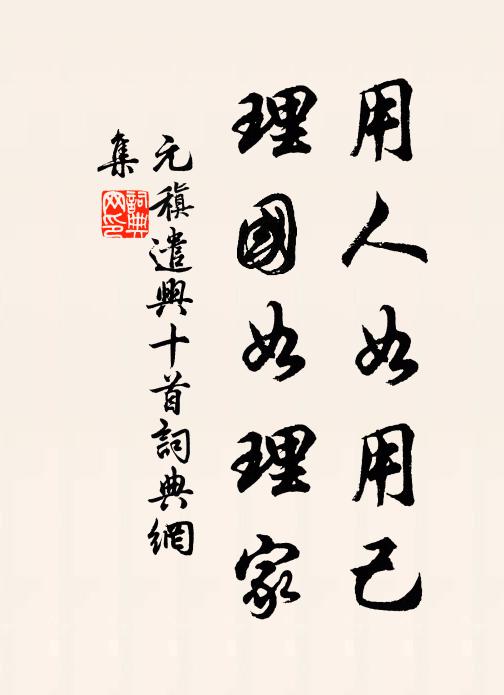 用人如用己
理國如理家
元稹遣興十首詞典網
集
詞典網印